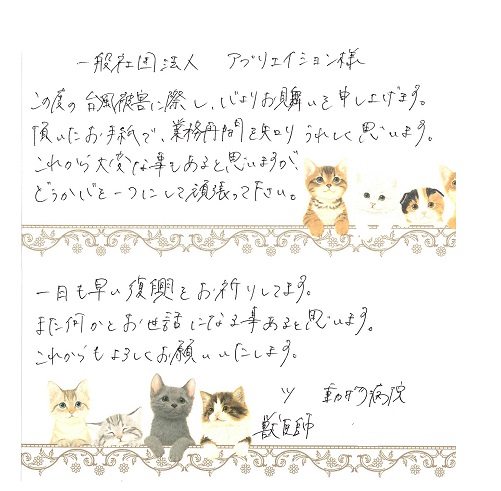 一般社団法人 アプリエイション様
この度の台風被害に際し、心よりお見舞いを申し上げます。
頂いたお手紙で、業務再開を知り うれしく思います。
これから大変な事もあると思いますが、
どうか心を一つにして頑張って下さい。
一日も早い復興をお祈りしてます。
また何かとお世話になる事あると思います。
これからもよろしくお願いいたします。
ツ 動物病院
獣医師